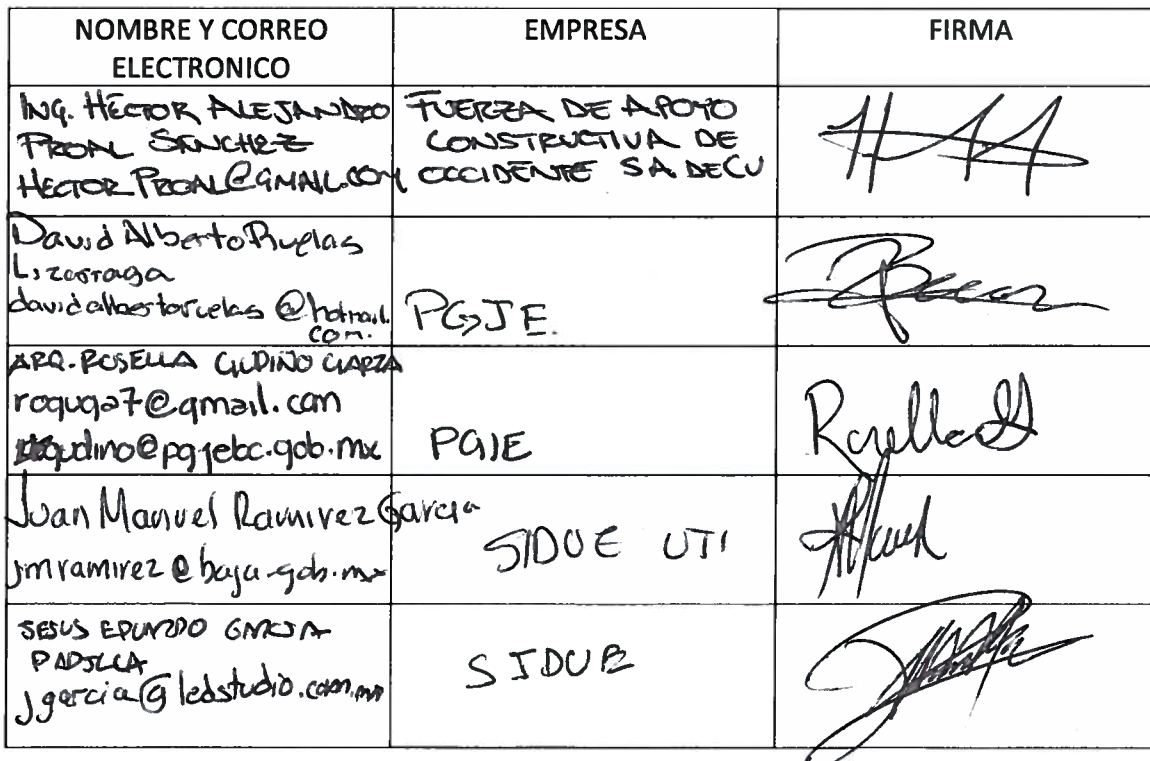 NOMBRE Y CORREO
ELECTRONICO
EMPRESA
FIRMA
ING. HÉCTOR ALEJANDRO
PROAL SÁNCHEZ
HECTOR.PROAL@GMAIL.COM
FUERZA DE APOYO
CONSTRUCTIVA DE
OCCIDENTE SA DE CV
David Alberto Ruelas
Lizarraga
davidalbertoruelas@hotmail.
com.
PGJE.
ARQ. ROSELLA GUDIÑO GARZA
roguga7@gmail.com
rgudino@pgjebc.gob.mx
PGJE
Juan Manuel Ramirez Garcia
jmramirez@baja.gob.mx
SIDUE UTI
JESUS EDUARDO GARCIA
PADILLA
jgarcia@ledstudio.com.mx
SIDUE